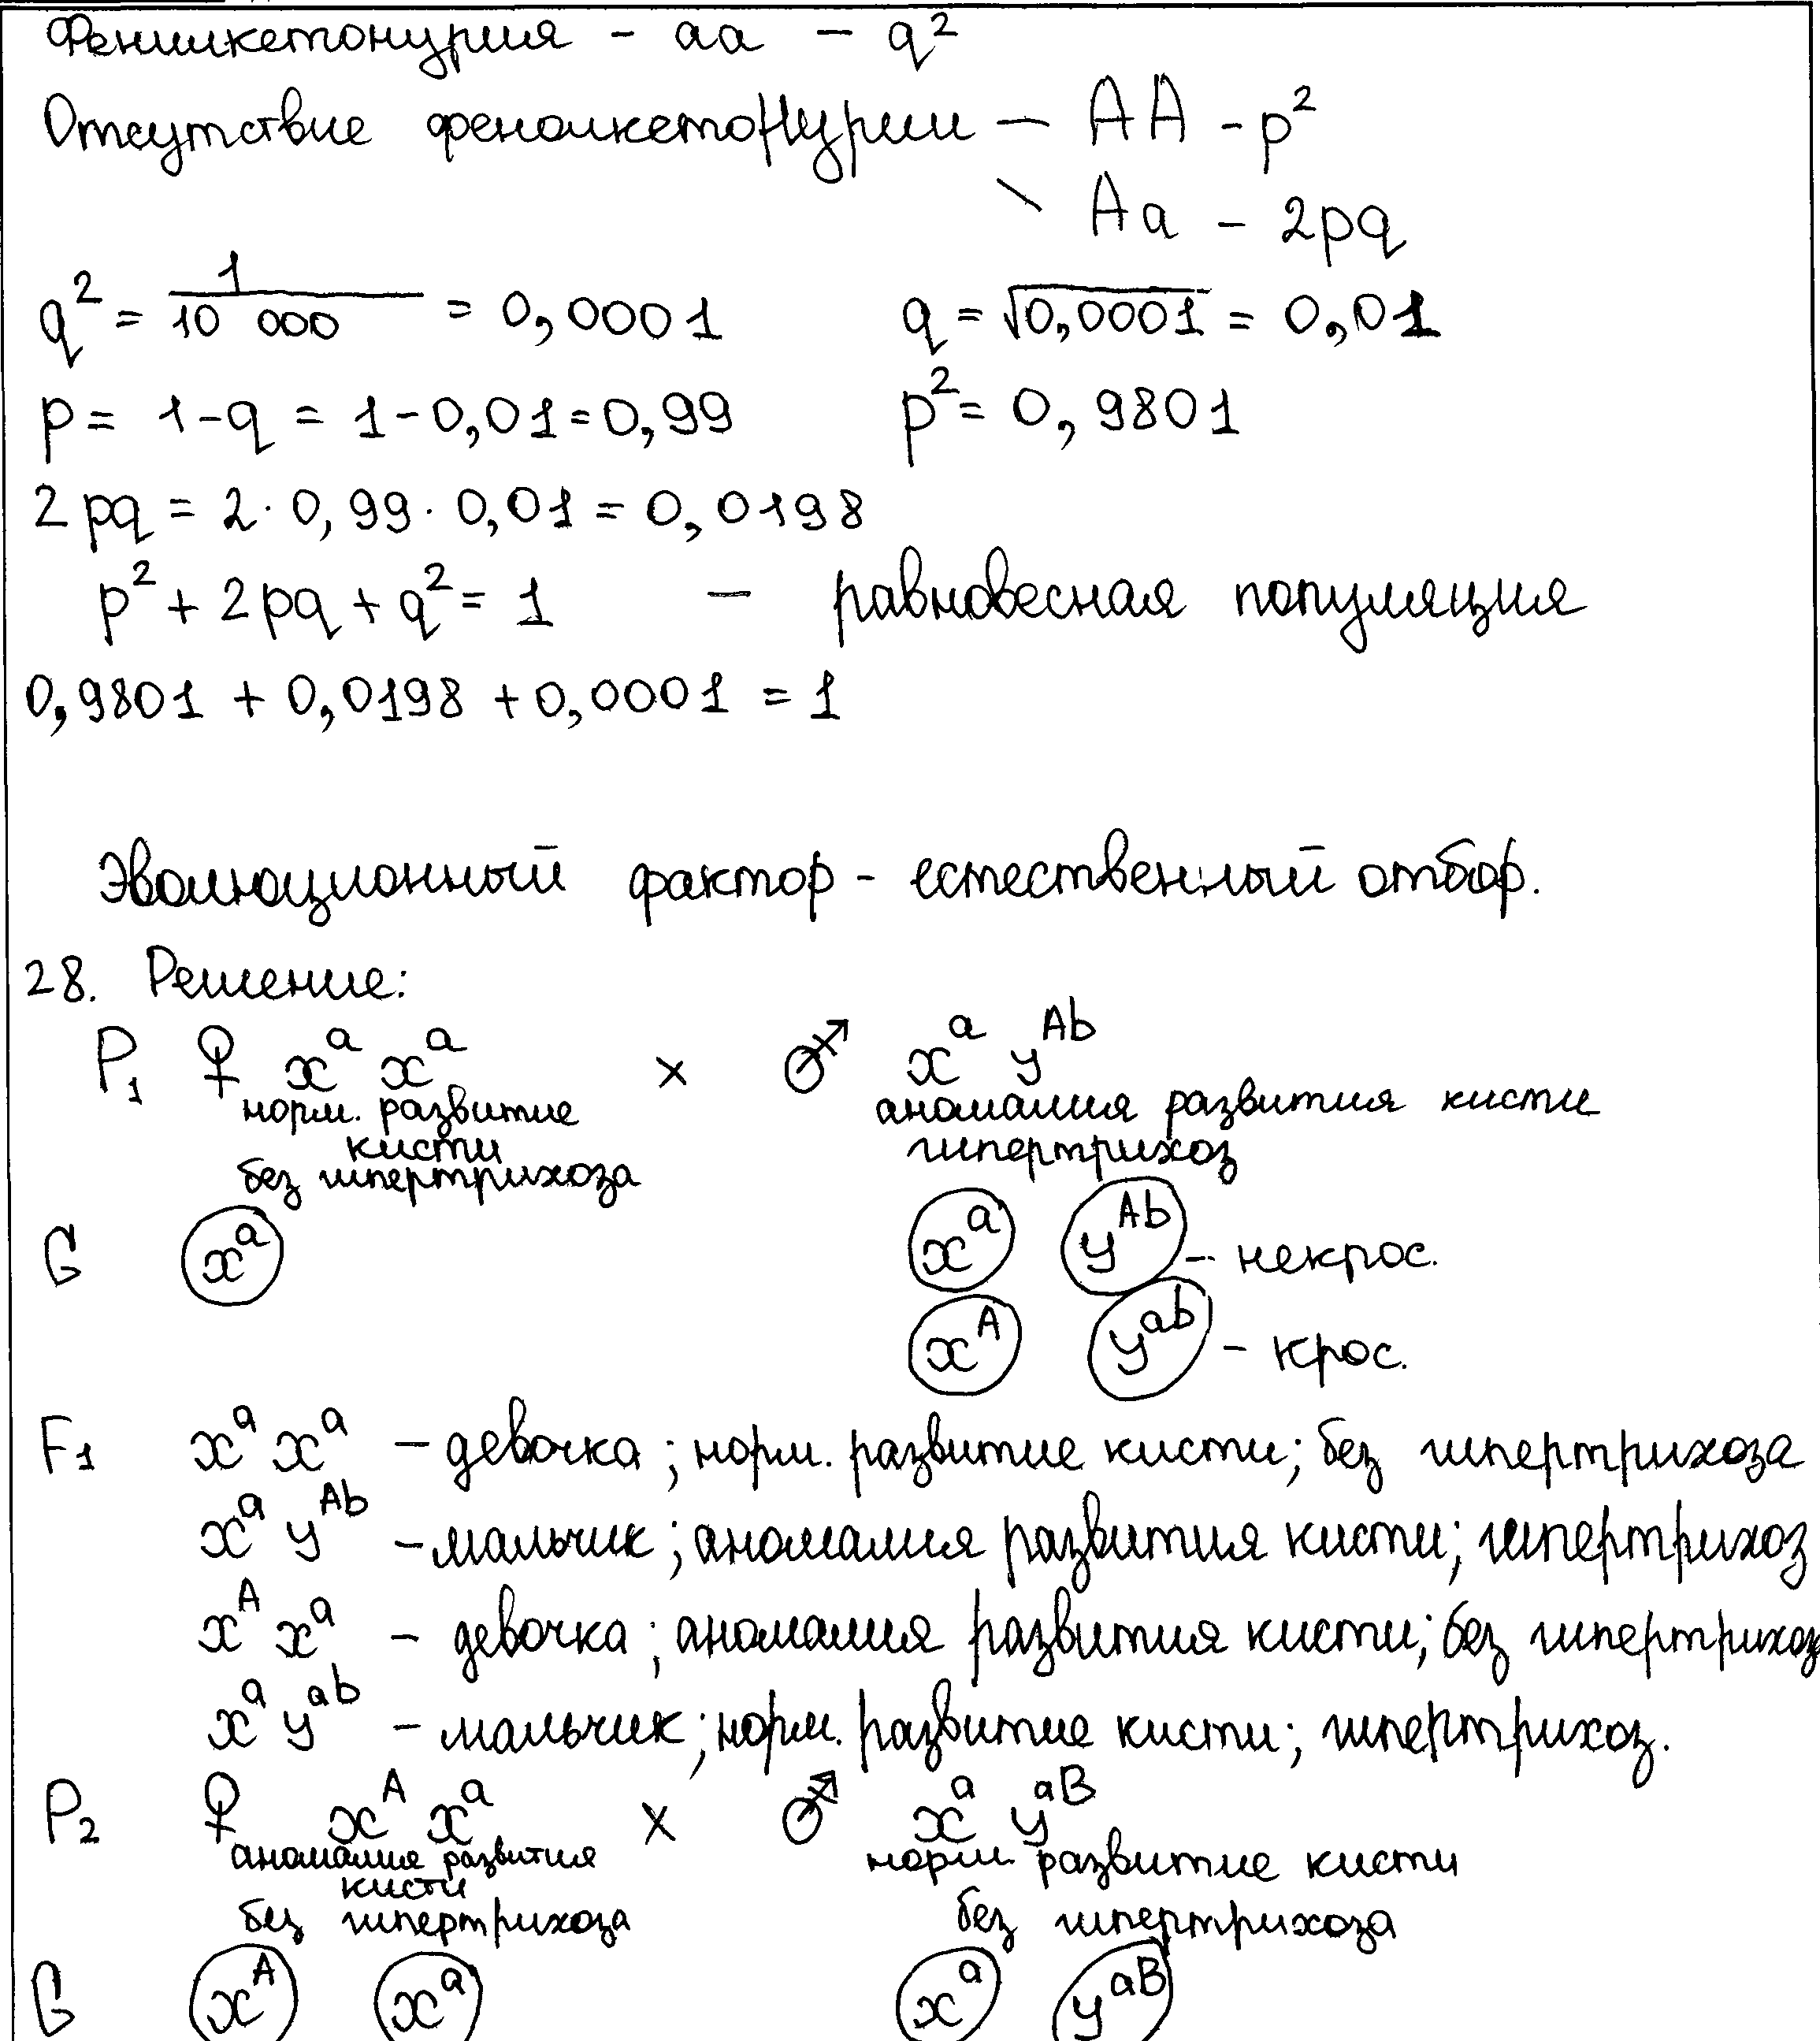 Фенилкетонурия - aa - q²
Отсутствие фенолкетонурии - AA - p²
\ Aa - 2pq
q² = 1/10 000 = 0,0001 q = √0,0001 = 0,01
p = 1-q = 1-0,01=0,99 p² = 0,9801
2pq = 2·0,99·0,01 = 0,0198
p² + 2pq + q² = 1 - равновесная популяция
0,9801 + 0,0198 + 0,0001 = 1
Эволюционный фактор - естественный отбор.
28. Решение:
P₁ ♀ xᵃ xᵃ × ♂ xᵃ y^Ab
норм. развитие аномалия развития кисти
кисти гипертрихоз
без гипертрихоза
G xᵃ xᵃ y^Ab - некрос.
x^A y^ab - крос.
F₁ xᵃ xᵃ - девочка; норм. развитие кисти; без гипертрихоза
xᵃ y^Ab - мальчик; аномалия развития кисти; гипертрихоз
x^A xᵃ - девочка; аномалия развития кисти; без гипертрихоз
xᵃ y^ab - мальчик; норм. развитие кисти; гипертрихоз.
P₂ ♀ x^A xᵃ × ♂ xᵃ y^aB
аномалия развития норм. развитие кисти
кисти
без гипертрихоза без гипертрихоза
G x^A xᵃ xᵃ y^aB